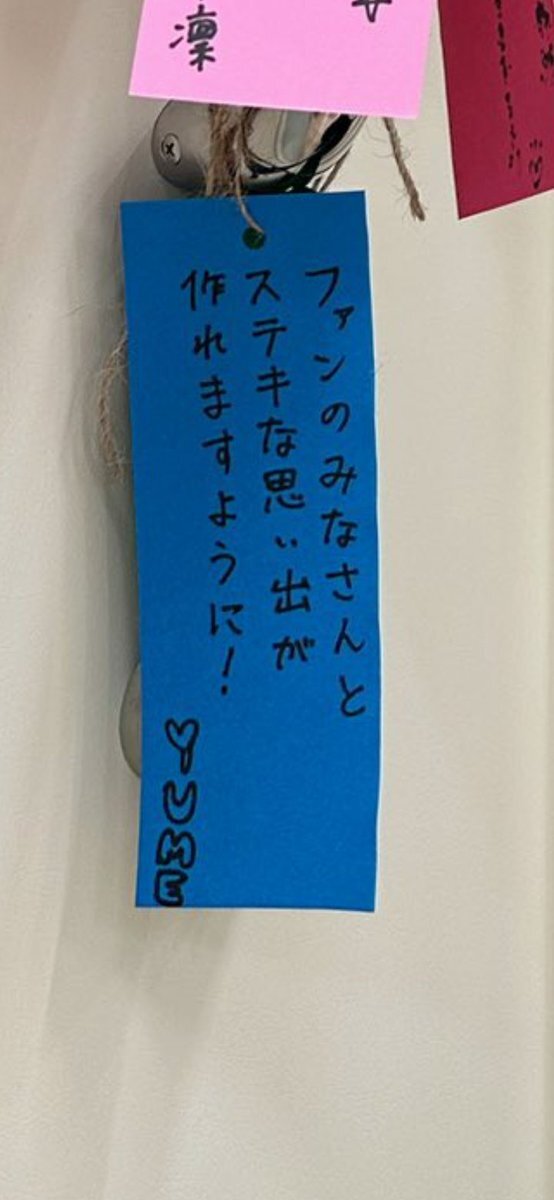 凜
ファンのみなさんと
ステキな思い出が
作れますように!
YUME